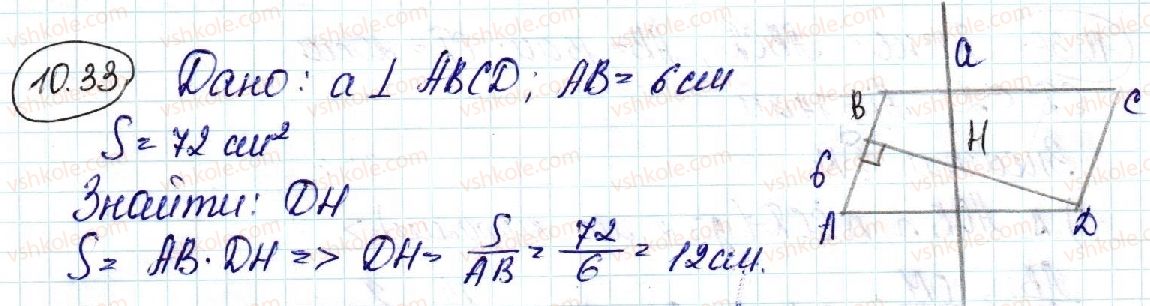 10.33 Дано: a ⊥ ABCD; AB = 6 см
S = 72 см²
Знайти: DH
S = AB · DH => DH = S/AB = 72/6 = 12 см.
a
B
C
H
6
A
D
vshkole.com